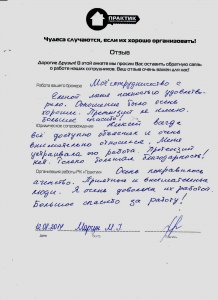 ПРАКТИК
Чудеса случаются, если их хорошо организовать!
Отзыв
Дорогие Друзья! В этой анкете мы просим Вас оставить обратную связь
о работе наших сотрудников. Ваш отзыв очень важен для нас!
Работа вашего брокера Моё сотрудничество с
Еленой меня полностью удовлетво-
рило. Отношение было очень
хорошее. Претензий не имею.
Большое спасибо!
Юридическое сопровождение Алексей всегда
всё доступно объяснял и очень
внимательно относился. Меня
устраивала его работа. Претензий
нет. Только большая благодарность!
Организация работы РК «Практик» Очень понравилось
агентство. Приятные и внимательные
люди. Я очень довольна их работой.
Большое спасибо за работу!
М. Г.
Дата